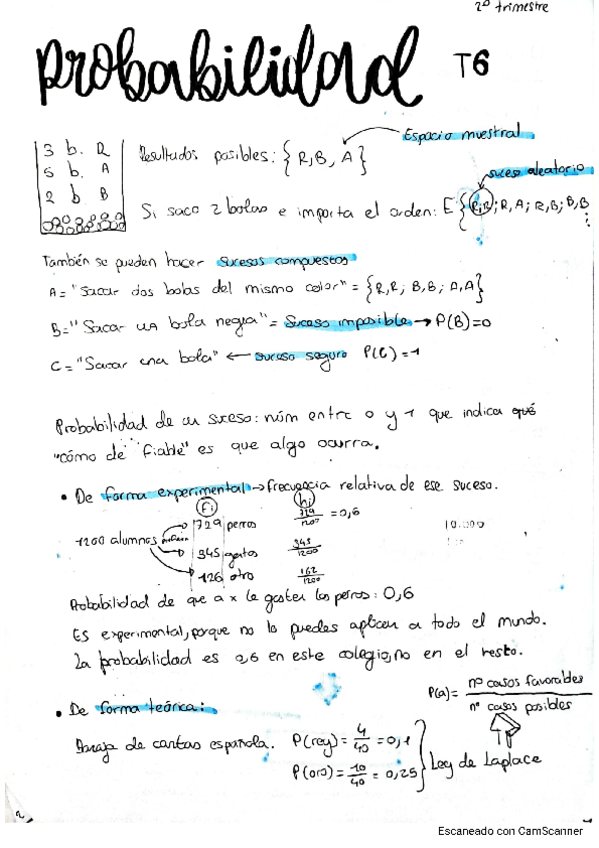 2º trimestre
probabilidad T6
3 b. R
5 b. A
2 b B
Resultados posibles: {R, B, A}
Espacio muestral
suceso aleatorio
Si saco 2 bolas e importa el orden: E {R,R; R,A; R,B; B,B
También se pueden hacer sucesos compuestos
A = "Sacar dos bolas del mismo color" = {R,R; B,B; A,A}
B = "Sacar una bola negra" = Suceso imposible → P(B)=0
C = "Sacar una bola" ← suceso seguro P(C)=1
Probabilidad de un suceso: núm entre 0 y 1 que indica qué
"cómo de fiable" es que algo ocurra.
• De forma experimental → frecuencia relativa de ese suceso.
fi hi
1200 alumnos
729 perros = 0,6
345 gatos 345/1200
126 otro 162/1200
Probabilidad de que a x le gusten los perros: 0,6
Es experimental, porque no lo puedes aplicar a todo el mundo.
La probabilidad es 0,6 en este colegio, no en el resto.
• De forma teórica:
P(a) = nº casos favorables / nº casos posibles
Baraja de cartas española. P(rey) = 4/40 = 0,1
P(oro) = 10/40 = 0,25
Ley de Laplace
Escaneado con CamScanner